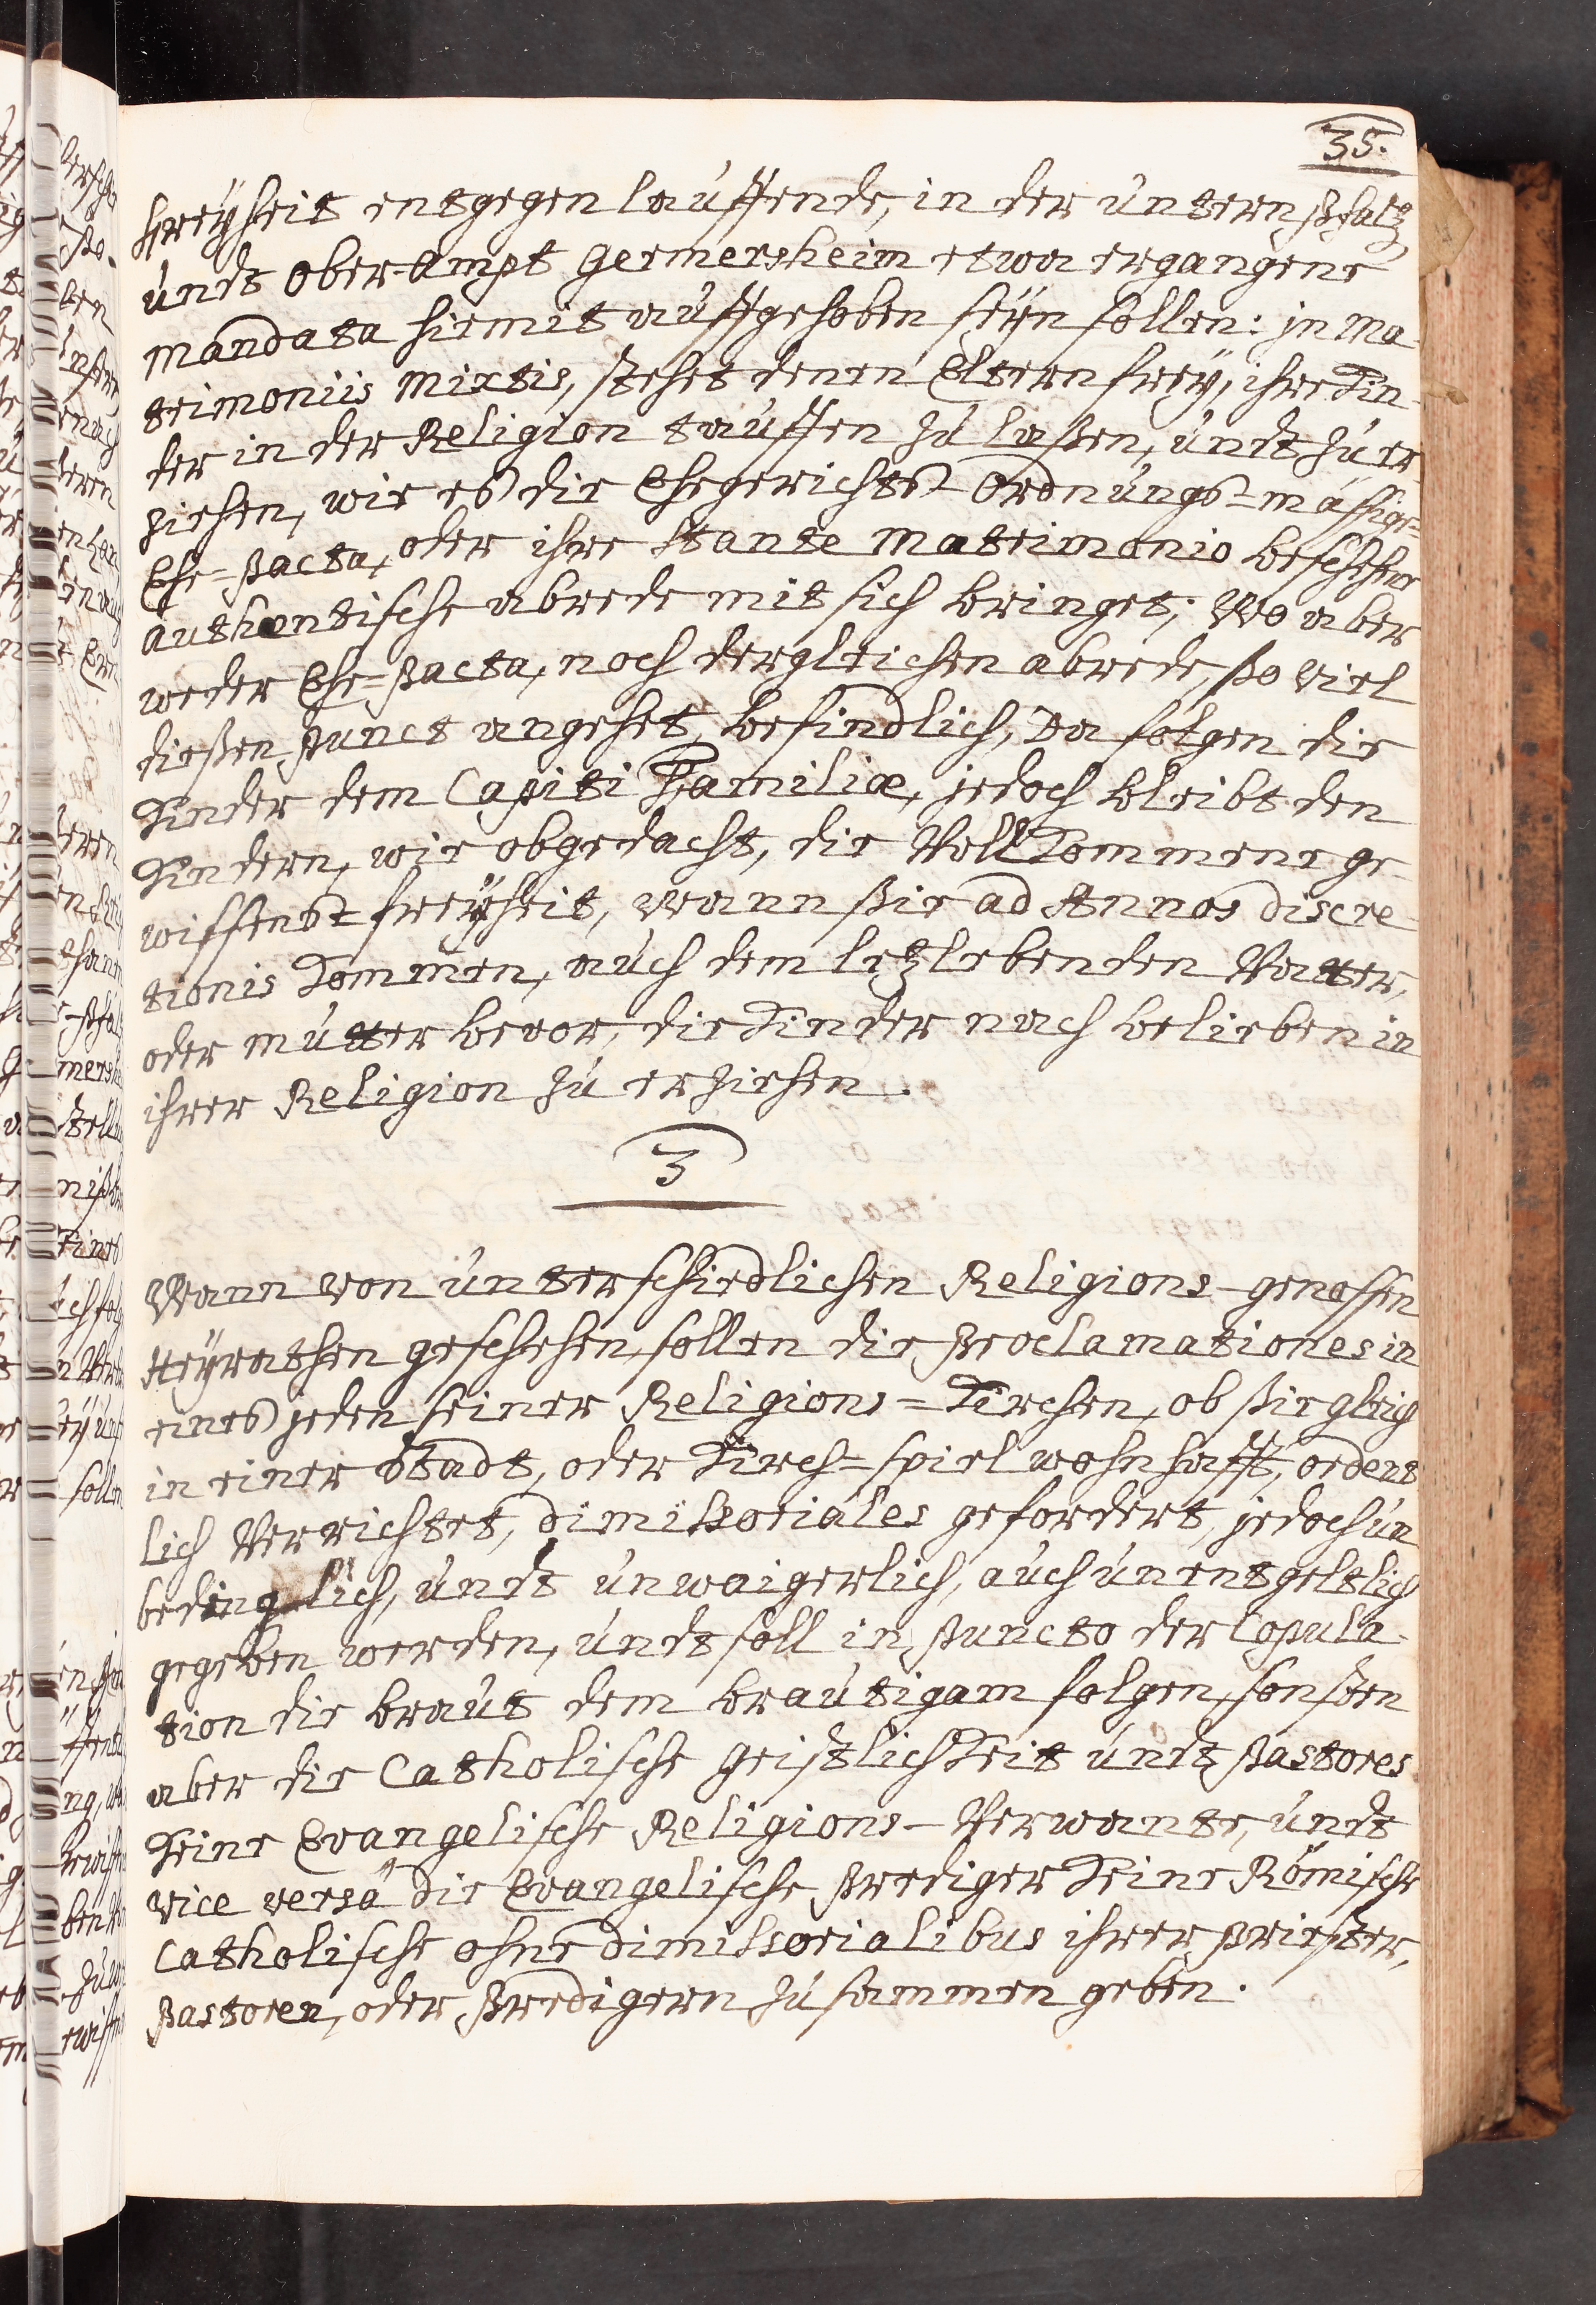 35.
freÿheit entgegen lauffende, in der untern Pfaltz
undt Ober-Ampt Germersheim etwa ergangene
Mandata hiemit auffgehoben seÿn sollen: jn Ma-
trimoniis Mixtis, stehet denen Eltern freÿ, ihre Kin-
der in der Religion tauffen zu laßen, undt zu er
ziehen, wie es die Ehegerichts-Ordnungs-mässige-
Ehe-Pacta, oder ihre stante Matrimonio beschehene
authentische abrede mit sich bringet; Wo aber
weder Ehe-Pacta, noch dergleichen abrede, ßo viel
dießen Punct angehet, befindlich, Da folgen die
Kinder dem Capiti Familiæ, jedoch bleibt den
Kindern, wie obgedacht, die Vollkommene ge-
wissens-freÿheit, wann ßie ad Annos discre-
tionis kommen, auch dem letzlebenden Vatter,
oder mutter bevor, die Kinder nach belieben in
ihrer Religion zu erziehen.
3
Wann von unterschiedlichen Religions-genossen
Heÿrathen geschehen, sollen die Proclamationes in
eines jeden seiner Religions-Kirchen, ob ßie gleich
in einer Stadt, oder Kirch-spiel wohnhafft, ordent
lich Verrichtet, dimissoriales gefordert, jedoch un
bedinglich, undt unwaigerlich, auch unentgeltlich
gegeben werden, undt soll in Puncto der Copula-
tion die braut dem brautigam folgen, sonsten
aber die Catholische geistlichkeit undt Pastores
keine Evangelische Religions-Verwante, undt
vice versa die Evangelische Prediger keine Römische
Catholische ohne dimissorialibus ihrer Priester,
Pastoren, oder Predigern zusammen geben.